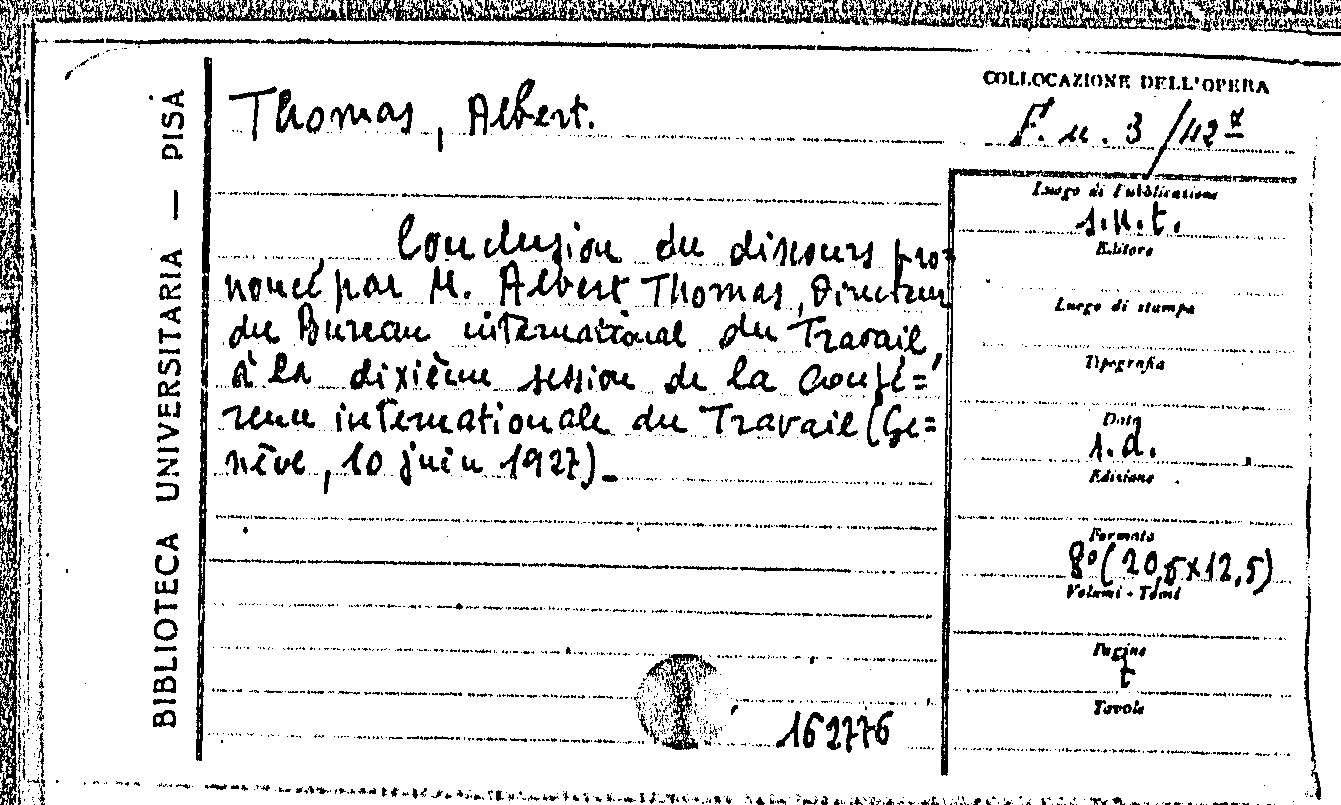 BIBLIOTECA UNIVERSITARIA — PISA
Thomas, Albert.
Conclusion du discours pro=
noncé par M. Albert Thomas, Directeur
du Bureau international du Travail,
à la dixième session de la Confé=
rence internationale du Travail (Ge=
nève, 10 juin 1927).
162776
COLLOCAZIONE DELL'OPERA
F. u. 3 /42
Luogo di Pubblicazione
s.n.t.
Editore
Luogo di stampa
Tipografia
Data
s.d.
Edizione
Formato
8º (20,5x12,5)
Volumi - Tomi
Pagine
Tavole